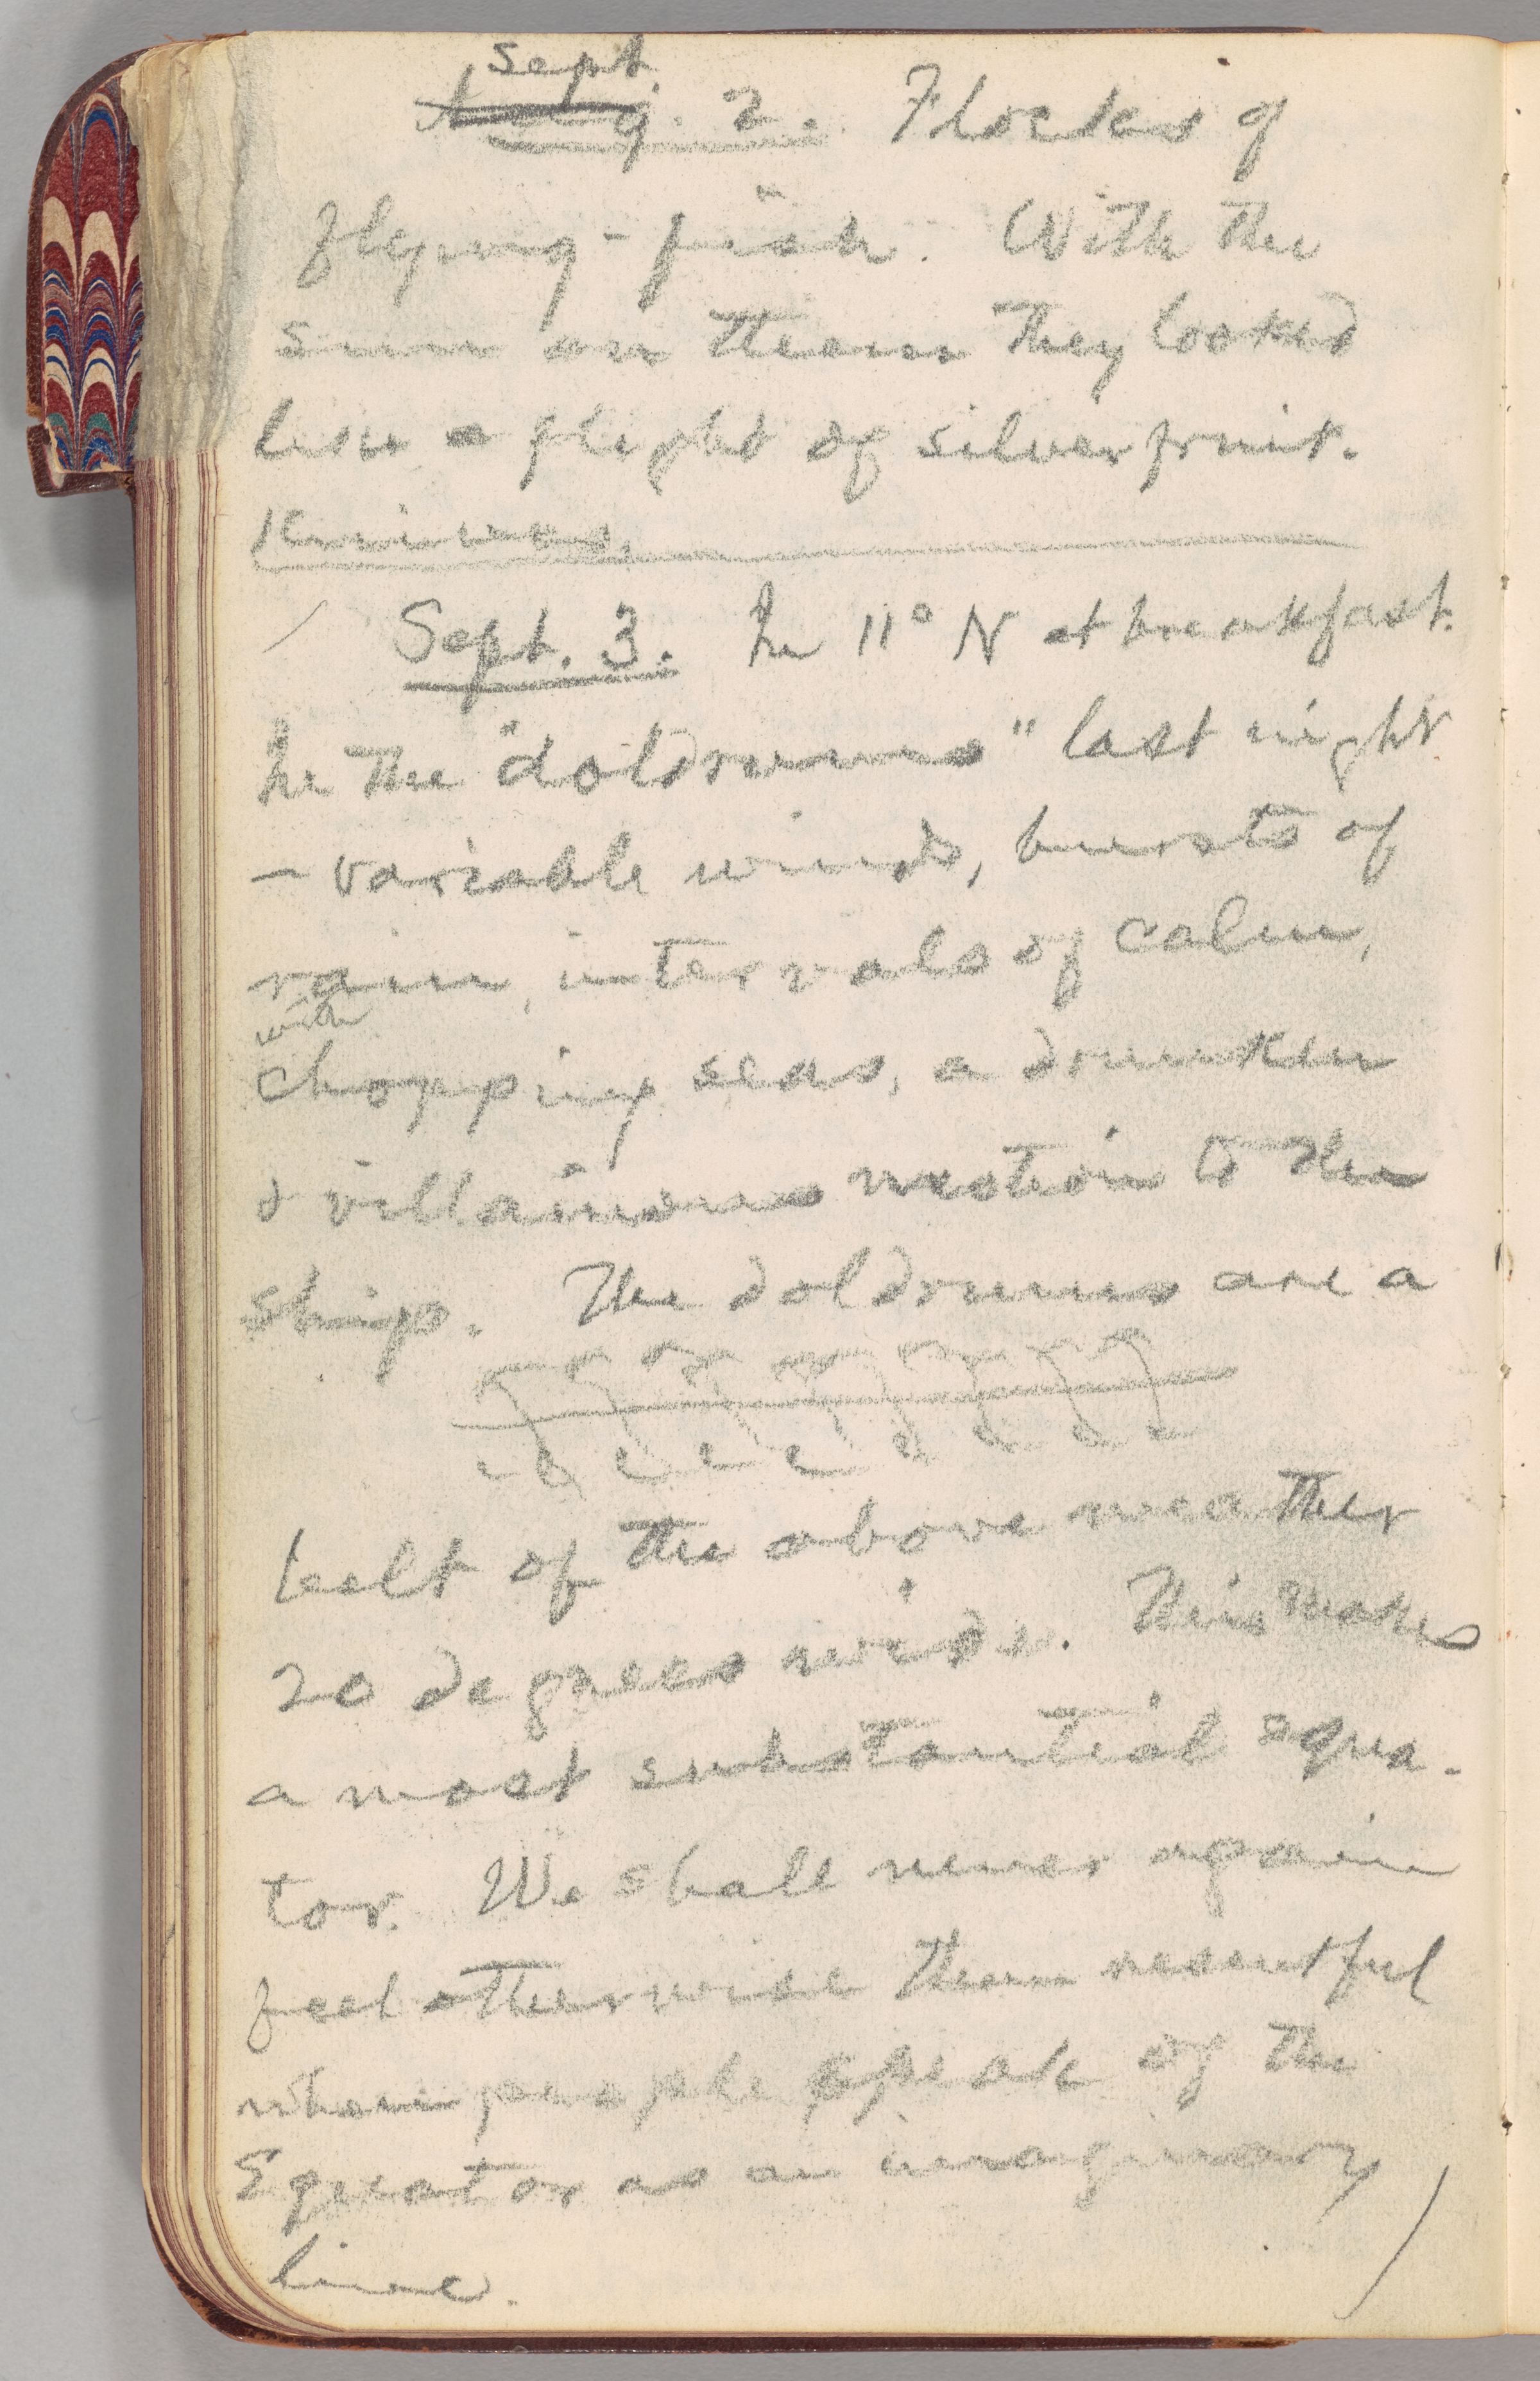 Sept.
Aug. 2. Flocks of
flying-fish. With the
sun on them they looked
like a flight of silver fruit-
knives.
Sept. 3. In 11° N at breakfast.
In the "doldrums" last night
– variable winds, bursts of
rain, intervals of calm,
with
chopping seas, a drunken
& villainous motion to the
ship. The doldrums are a
belt of the above weather
20 degrees wide. This makes
a most substantial equa-
tor. We shall never again
feel otherwise than resentful
when people speak of the
Equator as an imaginary
line.